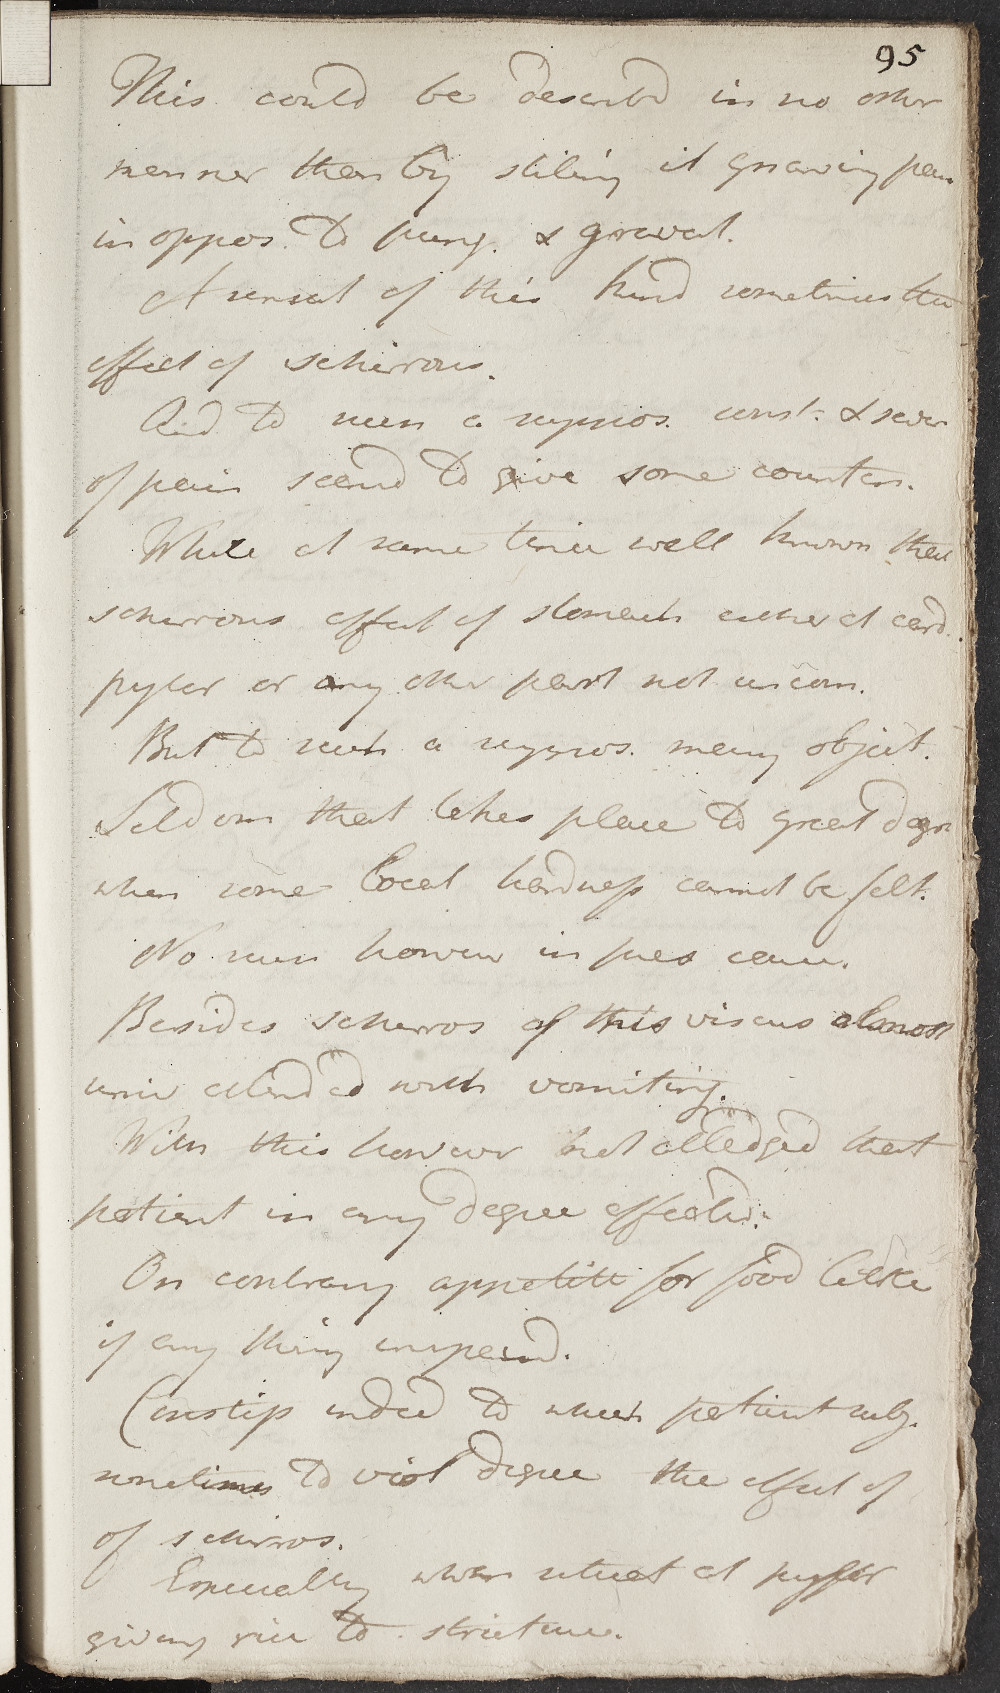 95
This could be describd in no other
manner than by stiling it gnawing pain
in oppos. to pung. & gravat.
A sensat of this kind sometimes the
effect of schirrous.
And to such a suppos. const. & sever
of pain seemd to give some counten.
While at same time well known that
schirrous affect of stomach either at card.
pylor or any other part not uncom.
But to such a suppos. many object.
Seldom that takes place to great degre
when some local hardness cannot be felt.
No such however in pres case.
Besides schirros of this viscus almost
univ attended with vomiting.
With this however not alledged that
patient in any degree affected.
On contrary appetite for food
if any thing
Constip indeed to which patient subj.
sometimes to viol degree the effect of
of schirros.
Especially when situat at pylor
giving rise to stricture.